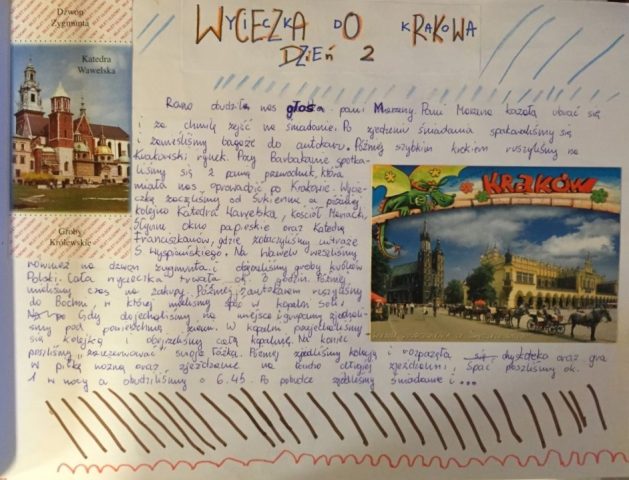 Dzwon
Zygmunta
Katedra
Wawelska
Groby
Królewskie
WYCIECZKA DO KRAKOWA
DZIEŃ 2
Rano obudził nas głos pani Marzeny. Pani Marzena kazała ubrać się
i za chwilę zejść na śniadanie. Po zjedzeniu śniadania spakowaliśmy się
i zanieśliśmy bagaże do autokaru. Później szybkim krokiem ruszyliśmy na
Krakowski rynek. Przy Barbakanie spotka-
liśmy się z panią przewodnik, która
miała nas oprowadzić po Krakowie. Wycie-
czkę zaczęliśmy od Sukiennic a później
kolejno Katedra Wawelska, kościół Mariacki,
Słynne okno papieskie oraz Katedrę
Franciszkanów, gdzie zobaczyliśmy witraże
S. Wyspiańskiego. Na Wawelu weszliśmy
również na dzwon zygmunta i obejrzeliśmy groby królów
Polski. Cała wycieczka trwała ok. godzin. Później
mieliśmy czas na zakupy. Później autokarem ruszyliśmy
do Bochni, w której mieliśmy spać w kopalni soli.
Gdy dojechaliśmy na miejsce i grupami zjechali-
śmy pod powierzchnię ziemi. W kopalni przejechaliśmy
się kolejką i obejrzeliśmy całą kopalnię. Na koniec
poszliśmy "zarezerwować" swoje łóżka. Później zjedliśmy kolację i rozpoczęła się dyskoteka oraz gra
w piłkę nożną oraz zjeżdżanie na bardzo długiej zjeżdżalni. Spać poszliśmy ok.
1 w nocy a obudziliśmy o 6.45. Po pobudce zjedliśmy śniadanie i...
KRAKÓW